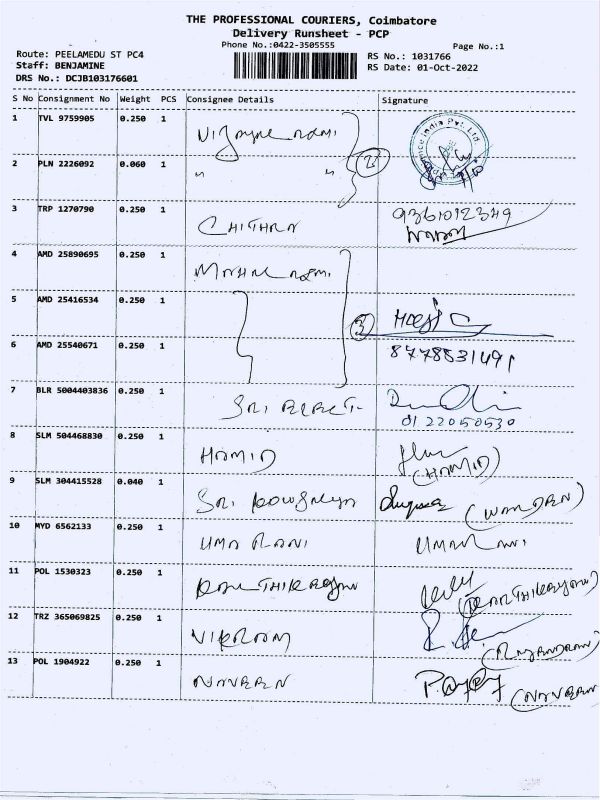 THE PROFESSIONAL COURIERS, Coimbatore
Delivery Runsheet - PCP
Phone No.:0422-3505555
Page No.:1
Route: PEELAMEDU ST PC4
Staff: BENJAMINE
DRS No.: DCJB103176601
RS No.: 1031766
RS Date: 01-Oct-2022
S No Consignment No Weight PCS Consignee Details Signature
1 TVL 9759905 0.250 1
2 PLN 2226092 0.060 1 " " 2
3 TRP 1270790 0.250 1 CHITHRA 9361012349
4 AMD 25890695 0.250 1
5 AMD 25416534 0.250 1 3
6 AMD 25540671 0.250 1 8778531491
7 BLR 5004403836 0.250 1 SRI ELECT. 0122050530
8 SLM 504468830 0.250 1 HAMID (HAMID)
9 SLM 304415528 0.040 1 SRI (WARDEN)
10 MYD 6562133 0.250 1 UMA RANI UMARANI
11 POL 1530323 0.250 1
12 TRZ 365069825 0.250 1 VIKRAM (RAJENDRAN)
13 POL 1904922 0.250 1 NAVEEN (NAVEEN)